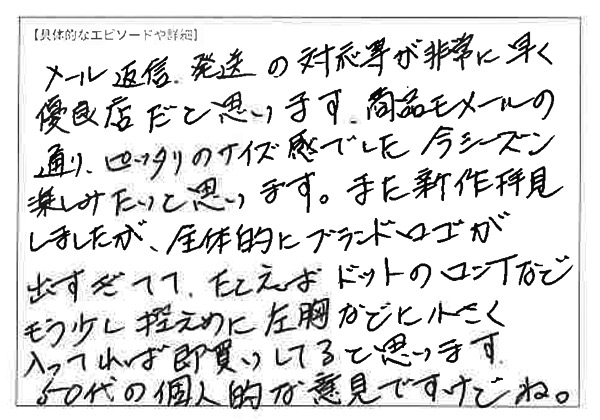 【具体的なエピソードや詳細】
メール返信、発送の対応等が非常に早く
優良店だと思います。商品もメールの
通り、ピッタリのサイズ感でした 今シーズン
楽しみたいと思います。また新作拝見
しましたが、全体的にブランドロゴが
出すぎてて、たとえばドットのロンTなど
もう少し控えめに左胸などに小さく
入ってれば即買いしてると思います。
50代の個人的な意見ですけどね。